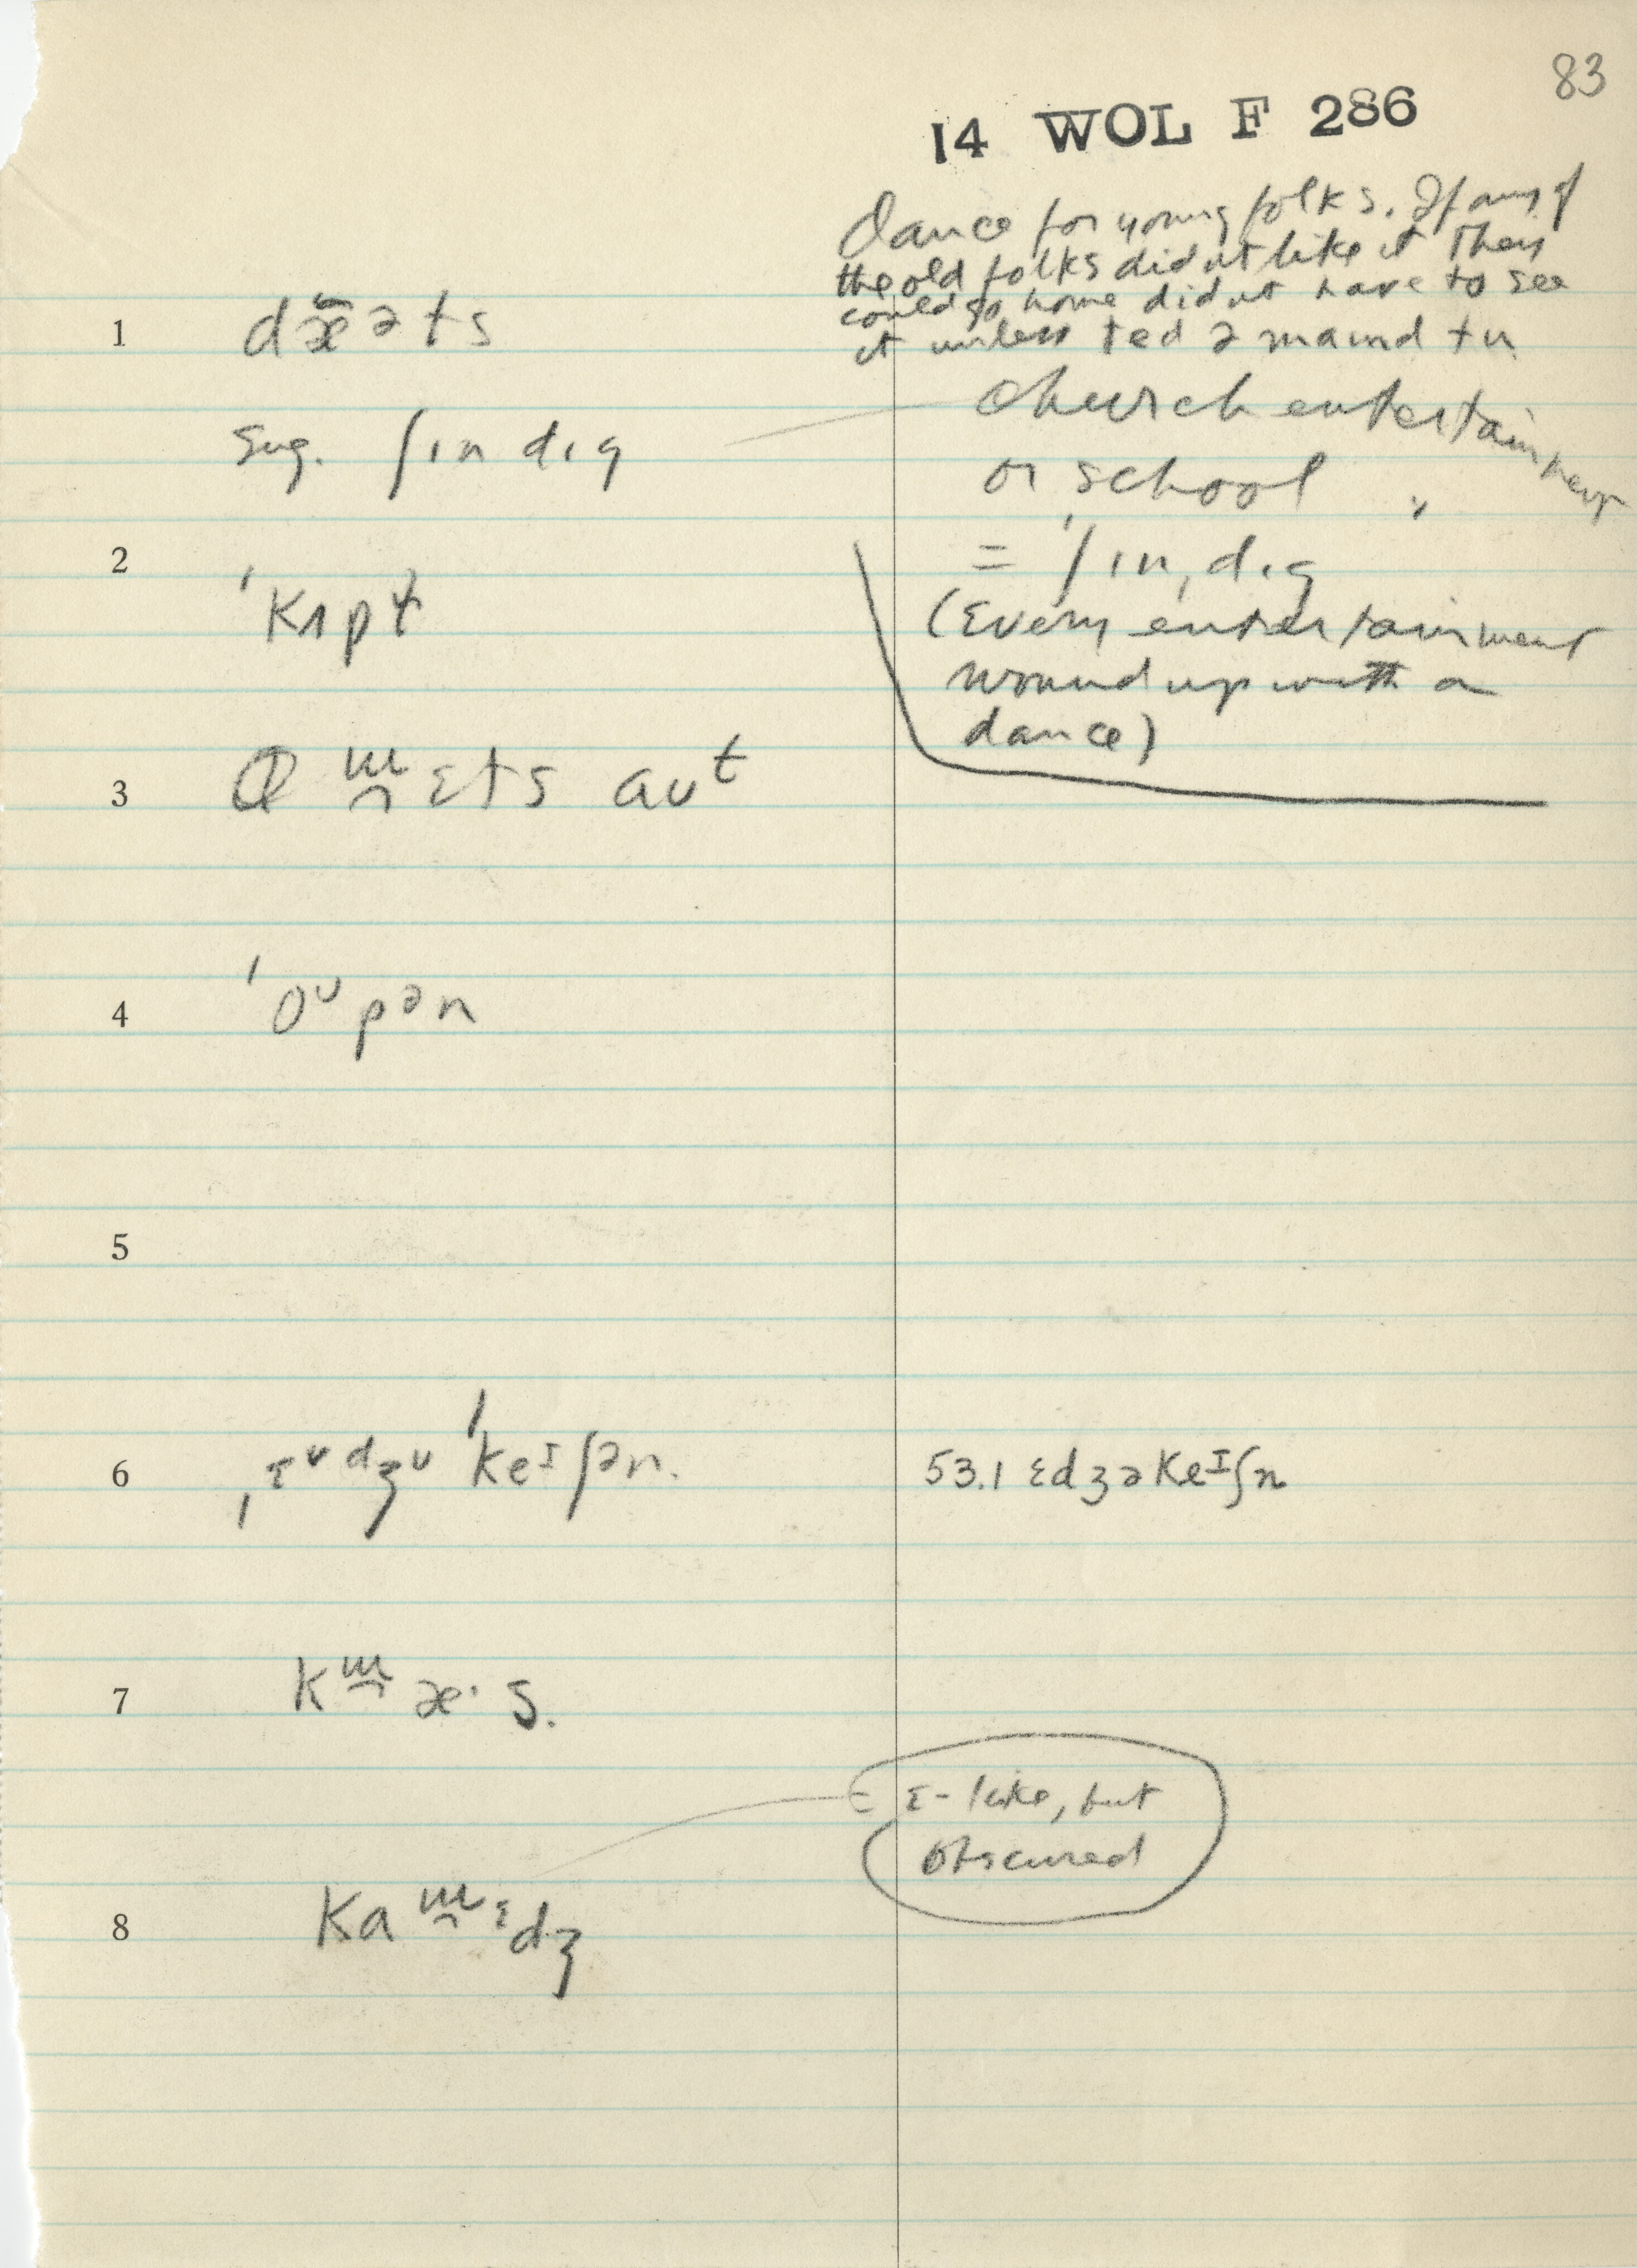 83
14 WOL F 286
Dance for young folks. If any of
the old folks didnt like it They
could go home didnt have to see
it unless ted ə maɪnd tu
1 dæ̃əts
Church entertainment
Sug. ʃɪndɪg
or school "
2 ˈkʌpɫ
= ˈʃɪnˌdɪg
(Every entertainment
wound up with a
dance)
3 ɛts aʊt
4 ˈoᴜpən
6 ˈkeɪʃən. 53.1 ɛdʒəkeɪʃn
7 k æ· s.
ɪ-like, but
obscured
8 ka ɪdʒ